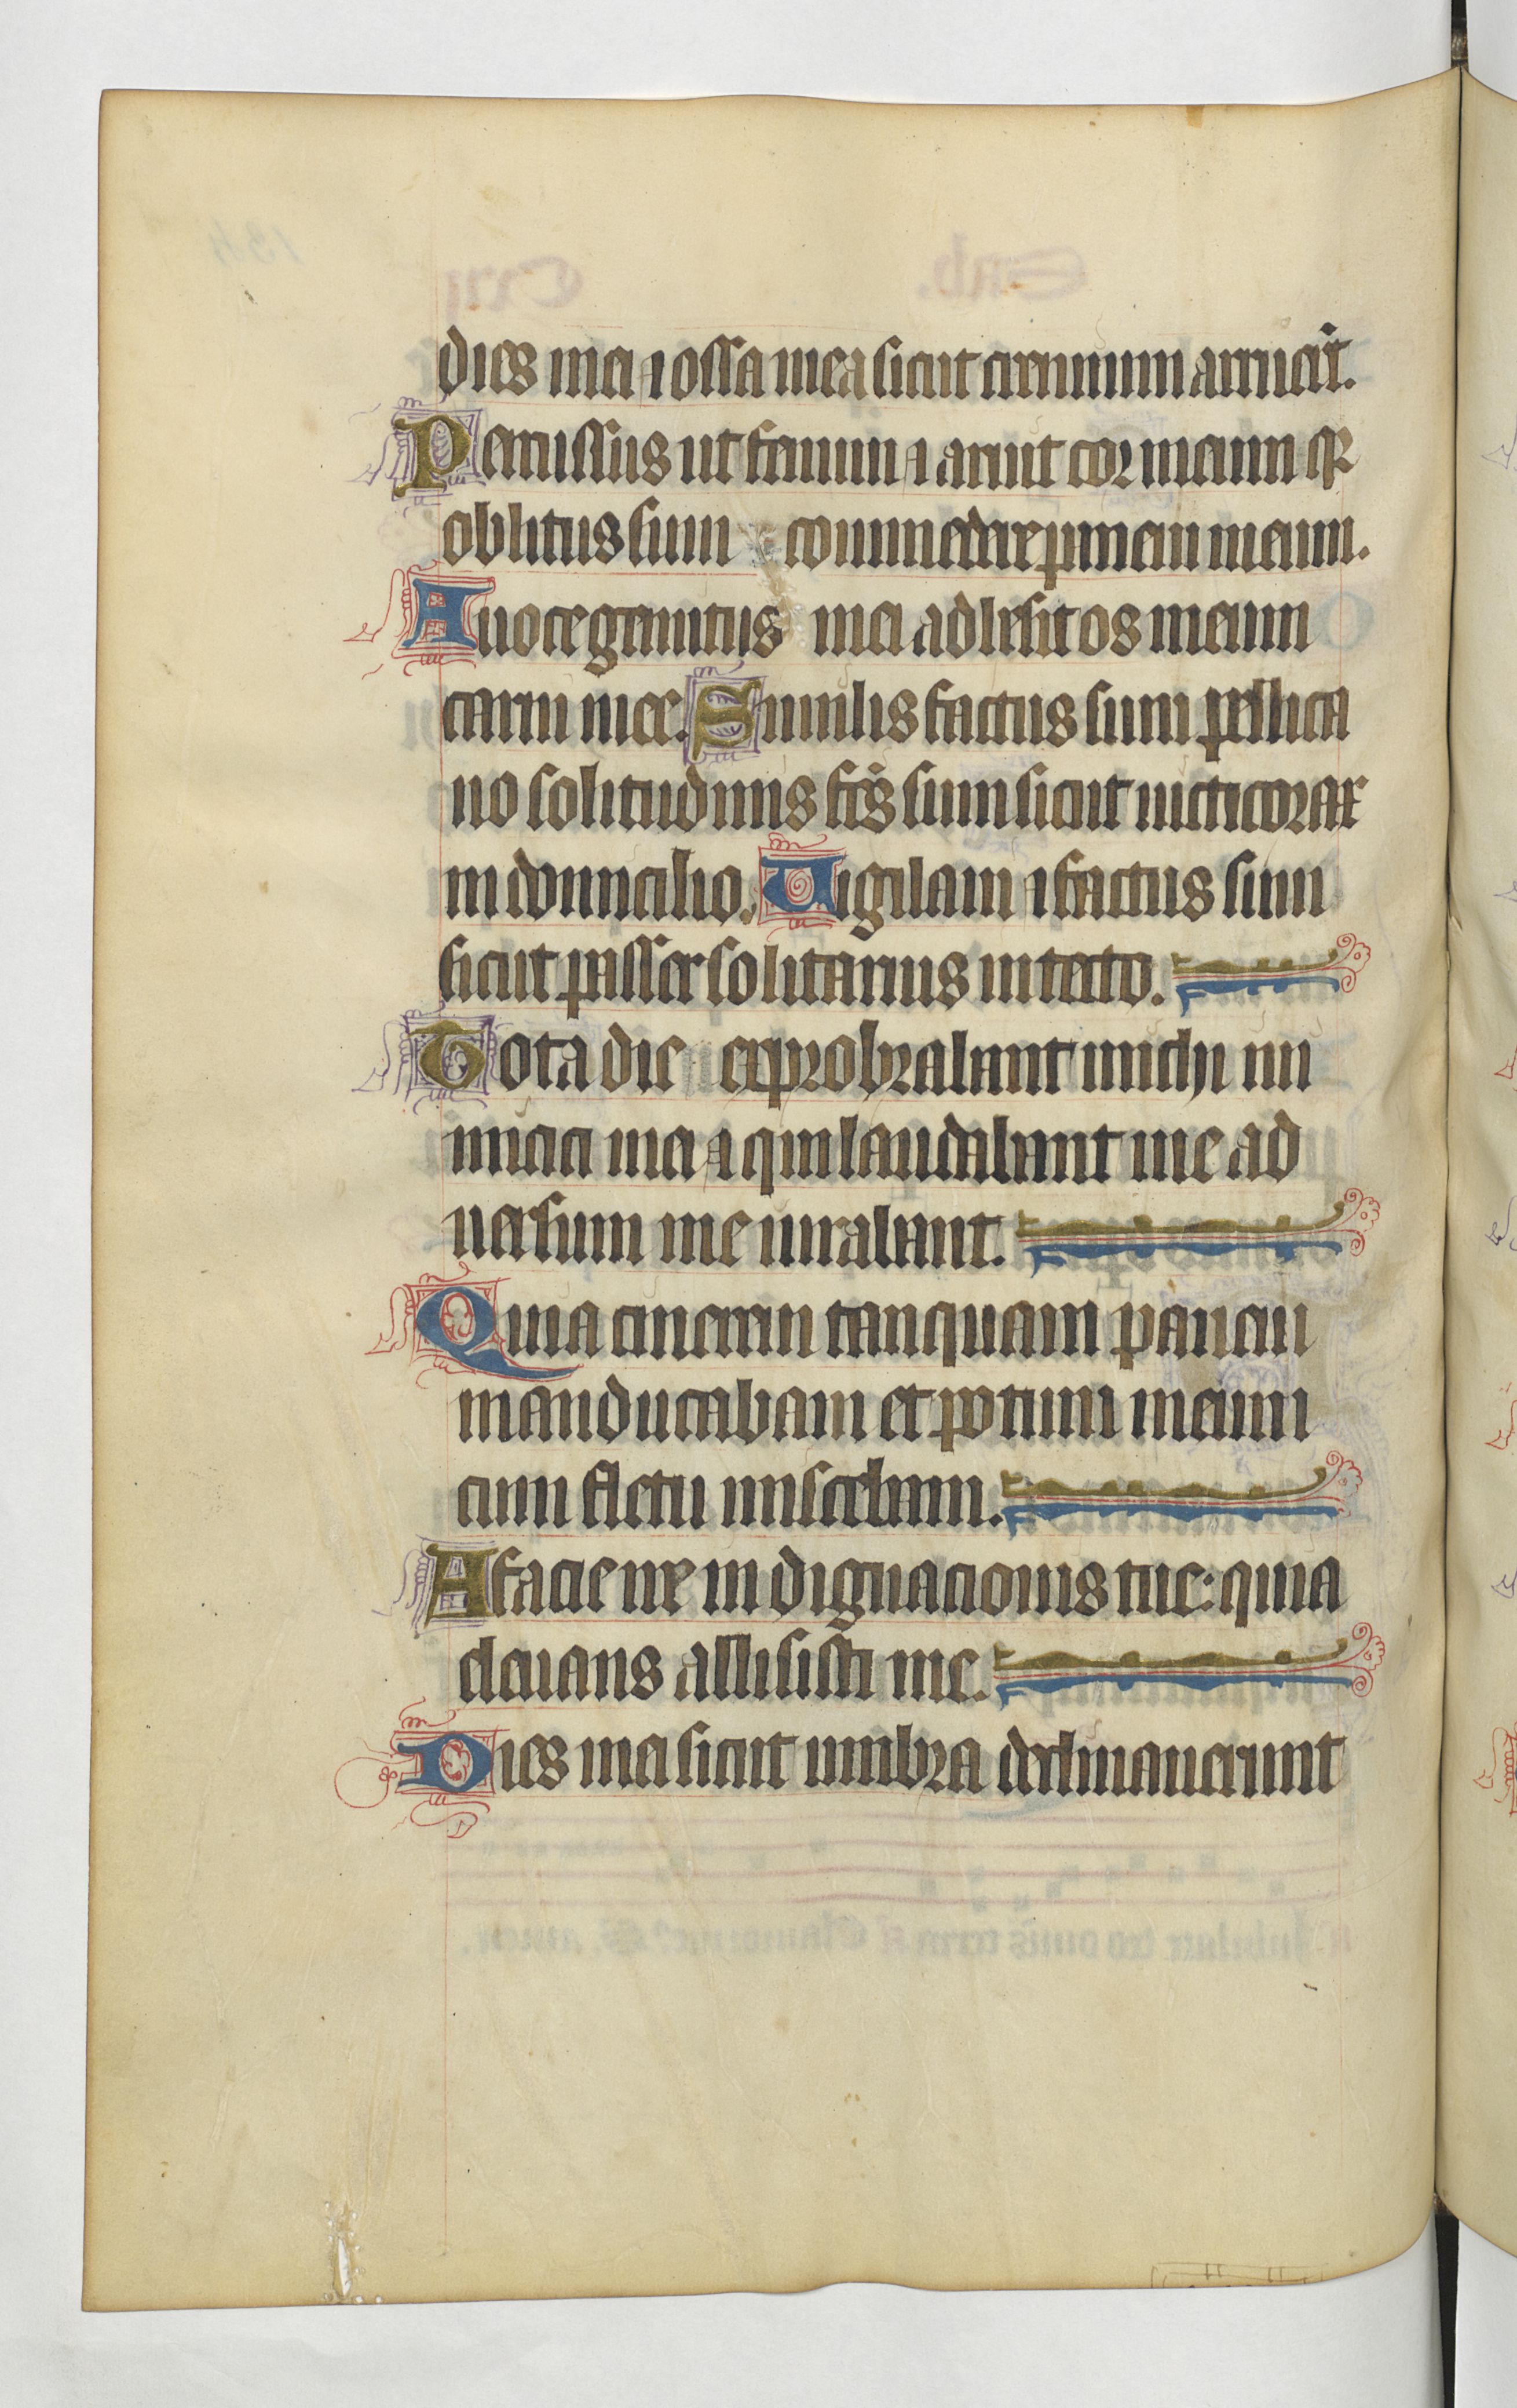 dies mei ⁊ ossa mea sicut cremium arueīt.
Percussus ut fenum ⁊ aruit cor meum qꝛ
oblitus sum commedere panem meum.
A uoce gemitus mei adhesit os meum
carni mee. Similis factus sum pellica
no solitudinis fc̄s sum sicut nicticorax
in domicilio. Uigilaui ⁊ factus sum
sicut passer solitarius in tecto.
Tota die exprobrabant michi ini
mici mei ⁊ qui laudabant me ad
uersum me iurabant.
Quia cinerem tanquam panem
manducabam et potum meum
cum fletu miscebam.
A facie ire in dignacionis tue: quia
eleuans allisisti me.
Dies mei sicut umbra declinauerunt